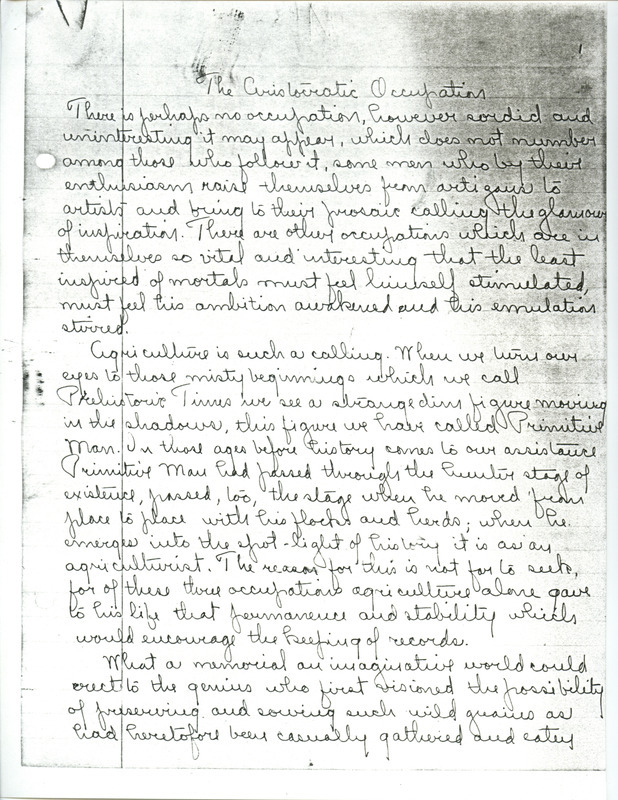 1
The Aristocratic Occupation
There is perhaps no occupation, however sordid and
uninteresting it may appear, which does not number
among those who follow it, some men who by their
enthusiasm raise themselves from artizans to
artists and bring to their prosaic calling the glamour
of inspiration. There are other occupations which are in
themselves so vital and interesting that the least
inspired of mortals must feel himself stimulated,
must feel his ambition awakened and his emulation
stirred.
Agriculture is such a calling. When we turn our
eyes to those misty beginnings which we call
Prehistoric Times we see a strange dim figure moving
in the shadows, this figure we have called Primitive
Man. In those ages before history comes to our assistance
Primitive Man had passed through the hunter stage of
existence, passed, too, the stage when he moved from
place to place with his flocks and herds; when he
emerges into the spot-light of history it is as an
agriculturist. The reason for this is not far to seek,
for of these three occupations agriculture alone gave
to his life that permanence and stability which
would encourage the keeping of records.
What a memorial an imaginative world could
erect to the genius who first visioned the possibility
of preserving and sowing such wild grains as
had heretofore been casually gathered and eaten